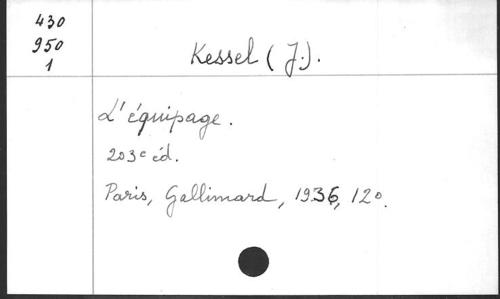 430
950
1
Kessel (J.).
L'équipage.
203e éd.
Paris, Gallimard, 1936, 12o.